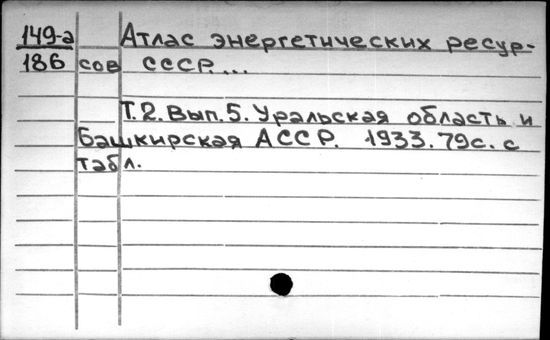 149-а Атлас энергетических ресур-
186 сов СССР...
Т.2. Вып.5. Уральская область и
Башкирская АССР. 1933. 79с. с
табл.